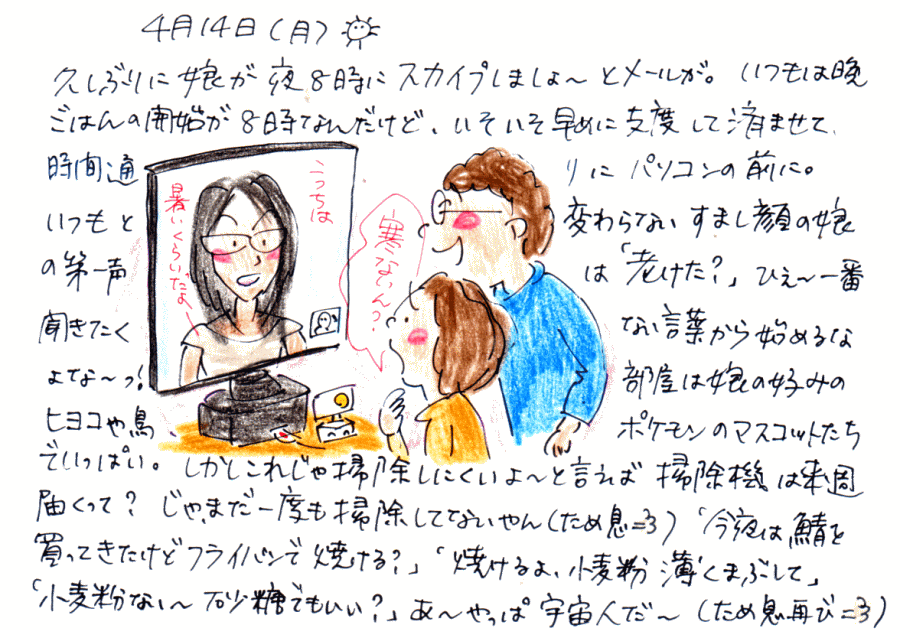 4月14日(月)
久しぶりに娘が夜8時にスカイプしましょ〜とメールが。いつもは晩
ごはんの開始が8時なんだけど、いそいそ早めに支度して済ませて、
時間通りにパソコンの前に。
いつもと変わらないすまし顔の娘
の第一声は「老けた?」ひぇ〜一番
聞きたくない言葉から始めるな
よな〜っ!部屋は娘の好みの
ヒヨコや鳥ポケモンのマスコットたち
でいっぱい。しかしこれじゃ掃除しにくいよ〜と言えば掃除機は来週
届くって?じゃ、まだ一度も掃除してないやん(ため息=3)「今夜は鯖を
買ってきたけどフライパンで焼ける?」「焼けるよ、小麦粉薄くまぶして」
「小麦粉ない〜砂糖でもいい?」あ〜やっぱ宇宙人だ〜(ため息再び=3)
こっちは
暑いくらいだよー
寒ないん?